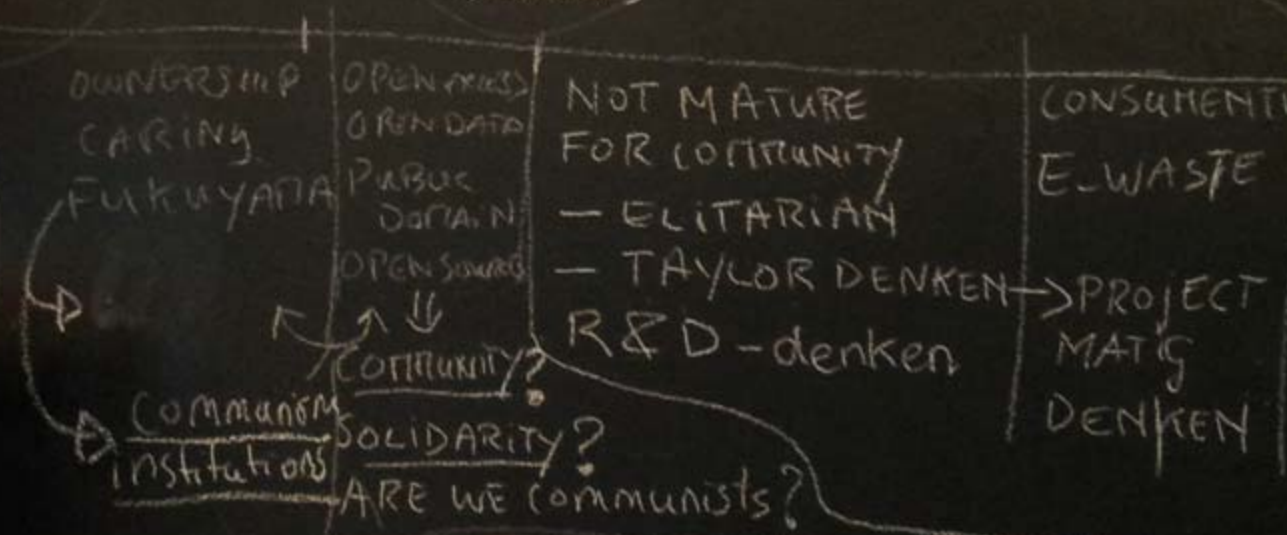 OWNERSHIP
CARING
FUKUYAMA
COMMUNISM
institutions
OPEN ACCESS
OPEN DATA
PUBLIC
DOMAIN
OPEN SOURCE
COMMUNITY?
SOLIDARITY?
ARE WE COMMUNISTS?
NOT MATURE
FOR COMMUNITY
— ELITARIAN
— TAYLOR DENKEN →
R&D - denken
CONSUMENT
E-WASTE
PROJECT
MATIG
DENKEN